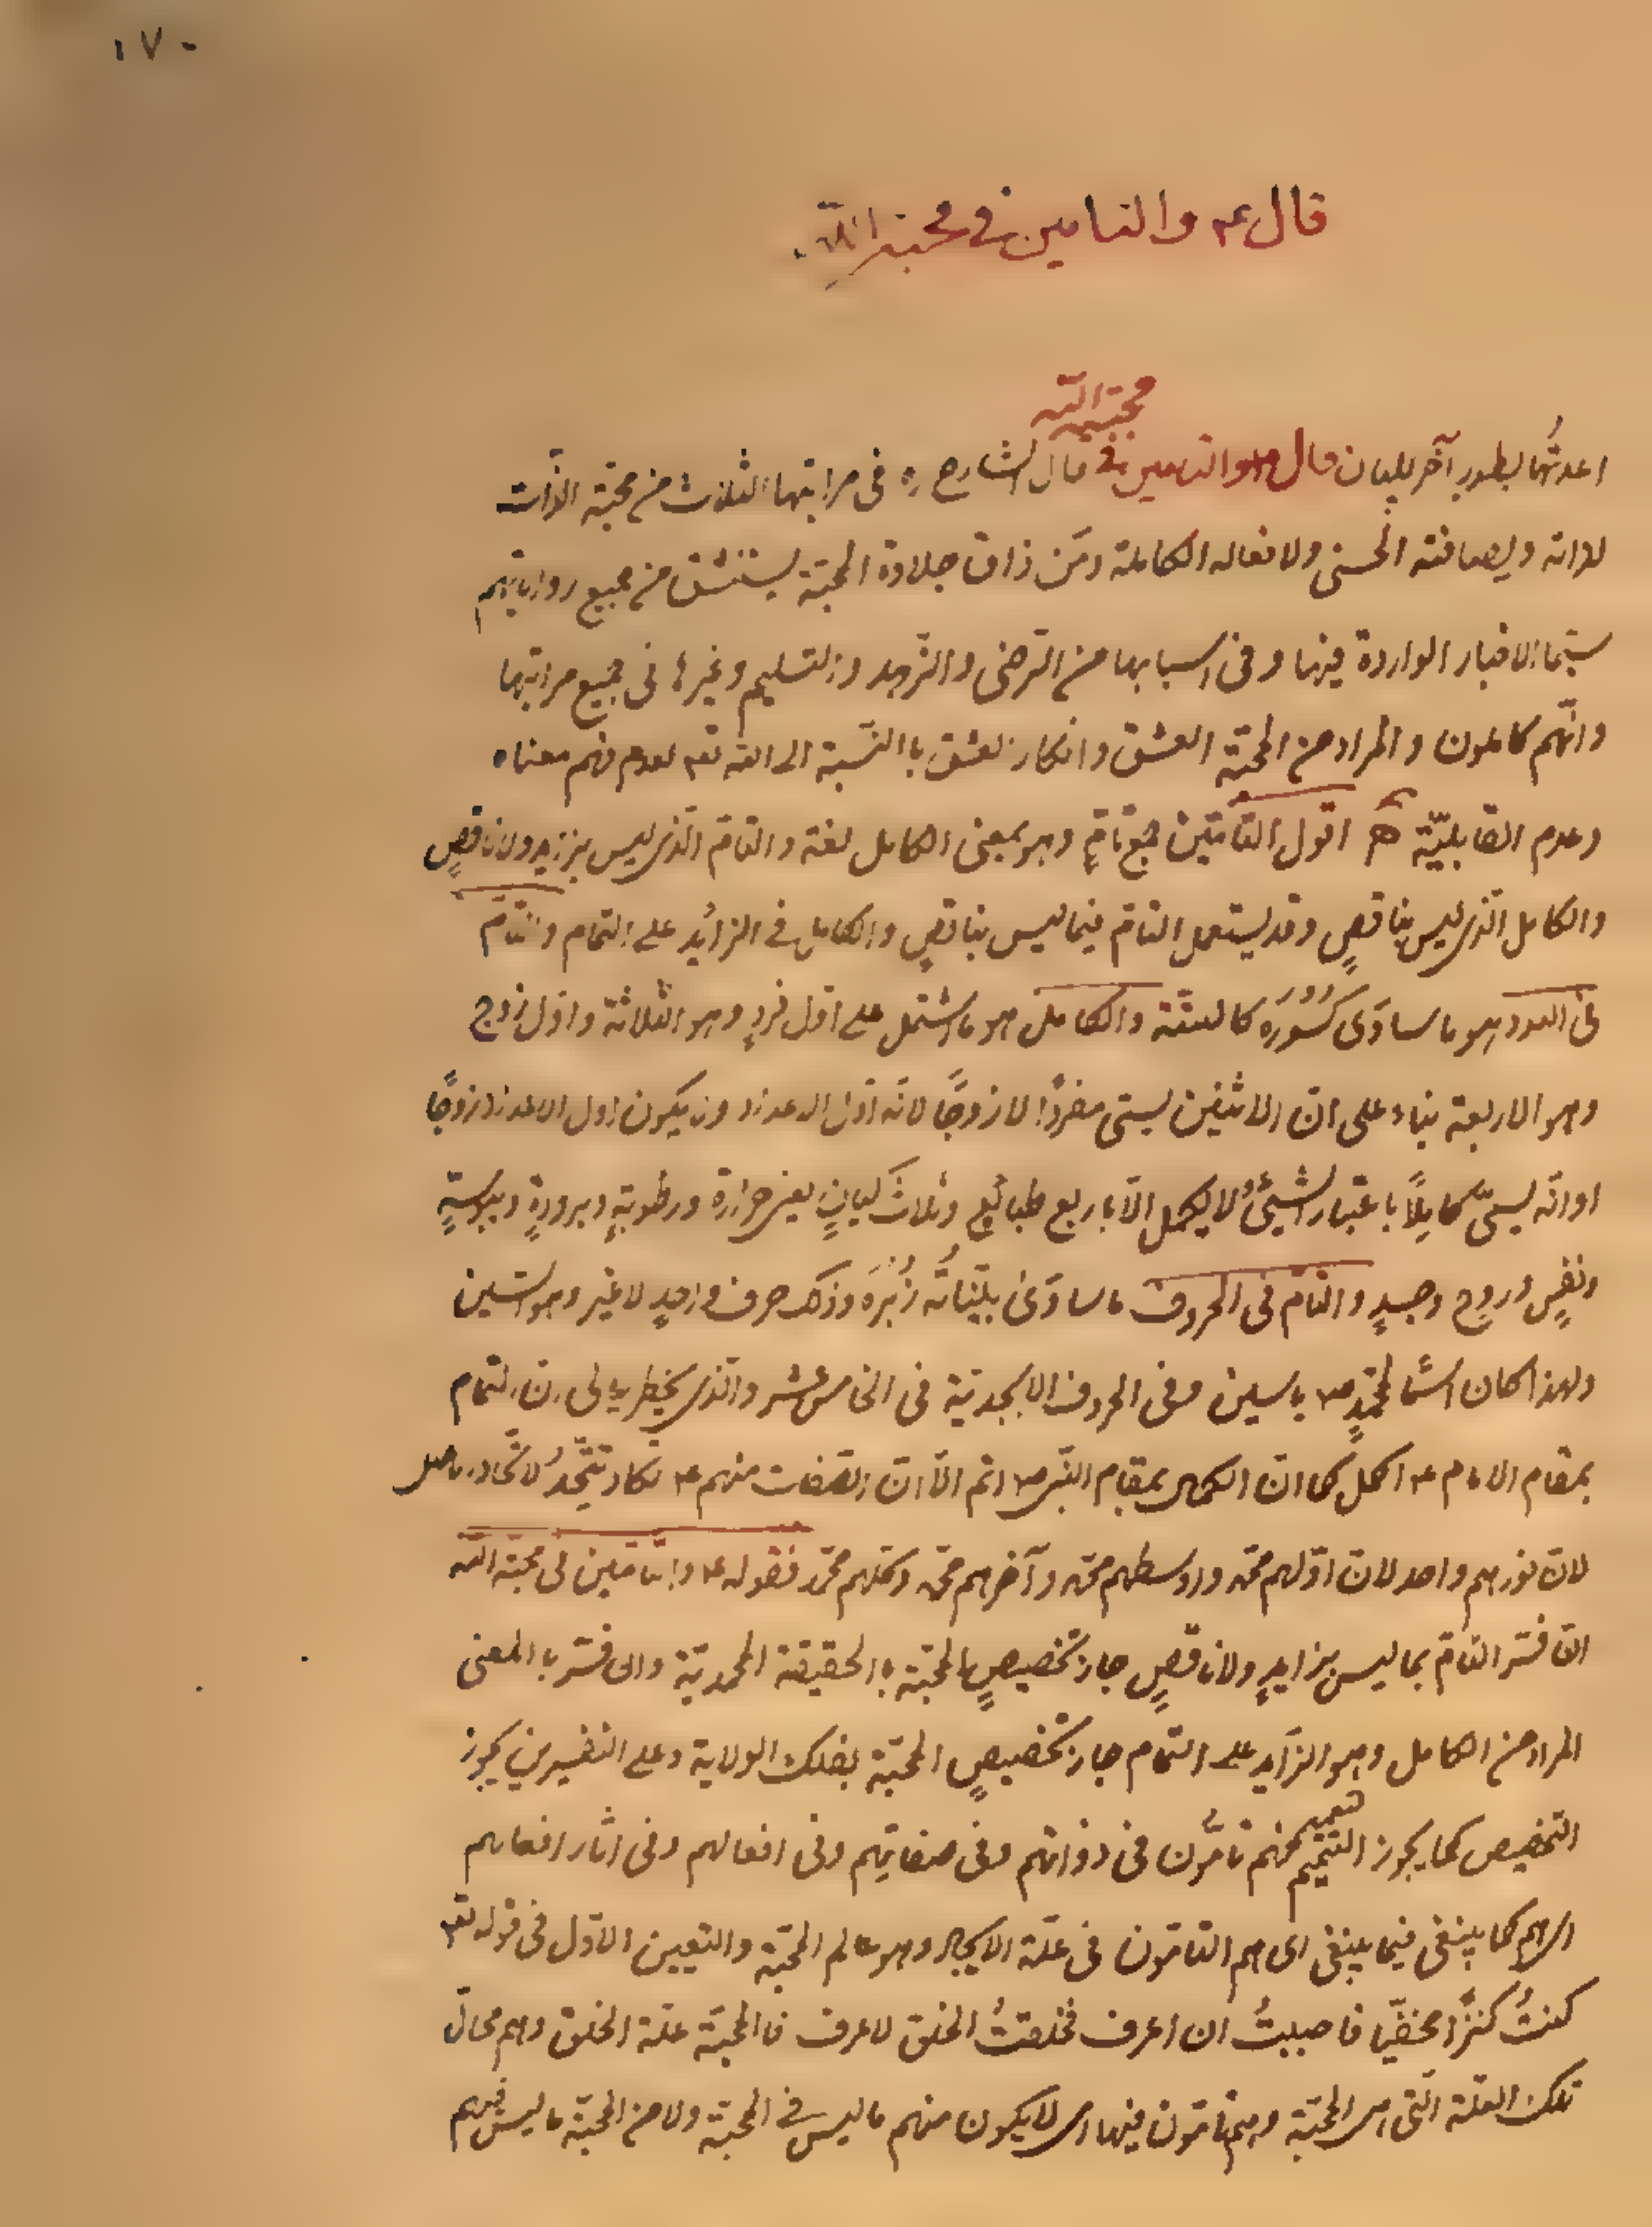 ١٧٠
قال ع والتامين في محبة الله
محبة الله
اعدتُها بطورٍ آخر للبيان قال ع والتامين في قال الشارح ره فى مراتبها الثلاث من محبة الذّات
لذاته ولصفاته الحسنى ولافعاله الكاملة ومَن ذاق حلاوة المحبّة يستنشق من جميع رواياتهم
سيّما الاخبار الواردة فيها وفى اسبابها من الترضى والتزهد والتسليم وغيرها فى جميع مراتبها
وانّهم كاملون والمراد من المحبّة العشق وانكار العشق باالنّسبة الى الله تعه لعدم فهم معناه
وعدم القابليّة اقول التّامّين جمع تامّ وهو بمعنى الكامل لغة والتامّ الّذى ليس بزايدٍ ولا ناقصٍ
والكامل الّذى ليس بناقصٍ وقد يستعمل التامّ فيما ليس بناقصٍ والكامل فى الزائد على التمام والتّامّ
فى العدد هو ما ساوَى كسُورَه كالستّة والكامل هو ما اشتمل على اوّل فردٍ وهو الثلاثة واوّل زوج
وهو الاربعة بناء على انّ الاثنين يسمّى مفردًا لا زوجًا لانّه اوّل الاعداد ولا يكون اول الاعداد زوجًا
او انّه يسمّى كاملاً باعتبار الشيئ لا يكمل الّا باربع طبائع وثلاث كيانٍ يعنى حرارة ورطوبةٍ وبرودةٍ ويبوسةٍ
ونفسٍ وروحٍ وجسدٍ والتامّ فى الحروف ما ساوَى بيّناتُه زُبُرَه وذلك حرف واحدٍ لا غير وهو السّين
ولهذا كان اسمًا لمحمّدٍ ص ياسين وفى الحروف الابجديّة فى الخامس عشر والّذى يخطر ببالى انّ التمام
بمقام الامام ع اكمل كما انّ الكمال بمقام النّبى ص اتم الّا انّ الصّفات منهم ع تكاد تتّحدُ لاتّحاد الاصل
لانّ نورهم واحد لانّ اوّلهم محمّد واوسطهم محمّد وآخرهم محمّد وكلّهم محمّد فقوله ع والتّامّين فى محبّة الله
انّ فسّر التامّ بما ليس بزايدٍ ولا ناقصٍ جاز تخصيصٍ المحبّة باالحقيقة المحمديّة وان فسّر باالمعنى
المراد من الكامل وهو الزّايد على التمام جاز تخصيصٍ المحبّة بفلك الولاية وعلى التفسيرين يجوز
التخصيص كما يجوز التعميم فهم تامّون فى ذواتهم وفى صفاتهم وفى افعالهم وفى اثار افعالهم
اى هم كما ينبغى فيما ينبغى اى هم التامّون فى علّة الايجاد وهو عالم المحبّة والتعيين الاوّل فى قوله تعه
كنتُ كنزًا مخفيّا فاحببتُ ان اعرف فخلقتُ الخلق لاعرف فاالمحبّة علّة الخلق وهم محالّ
تلك العلّة الّتى هى المحبّة وهم تامّون فيها اى لا يكون منهم ما ليس فى المحبّة ولا من المحبّة ما ليس فيهم